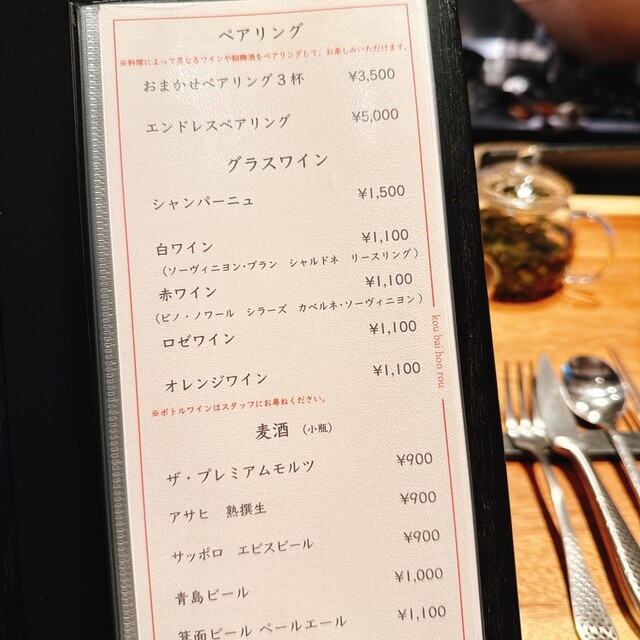 ペアリング
※料理によって異なるワインや紹興酒をペアリングして、お楽しみいただけます。
おまかせペアリング3杯 ¥3,500
エンドレスペアリング ¥5,000
グラスワイン
シャンパーニュ ¥1,500
白ワイン ¥1,100
(ソーヴィニヨン・ブラン シャルドネ リースリング)
赤ワイン ¥1,100
(ピノ・ノワール シラーズ カベルネ・ソーヴィニヨン)
ロゼワイン ¥1,100
オレンジワイン ¥1,100
※ボトルワインはスタッフにお尋ねください。
麦酒 (小瓶)
ザ・プレミアムモルツ ¥900
アサヒ 熟撰生 ¥900
サッポロ エビスビール ¥900
青島ビール ¥1,000
箕面ビール ペールエール ¥1,100
kou bai hon rou